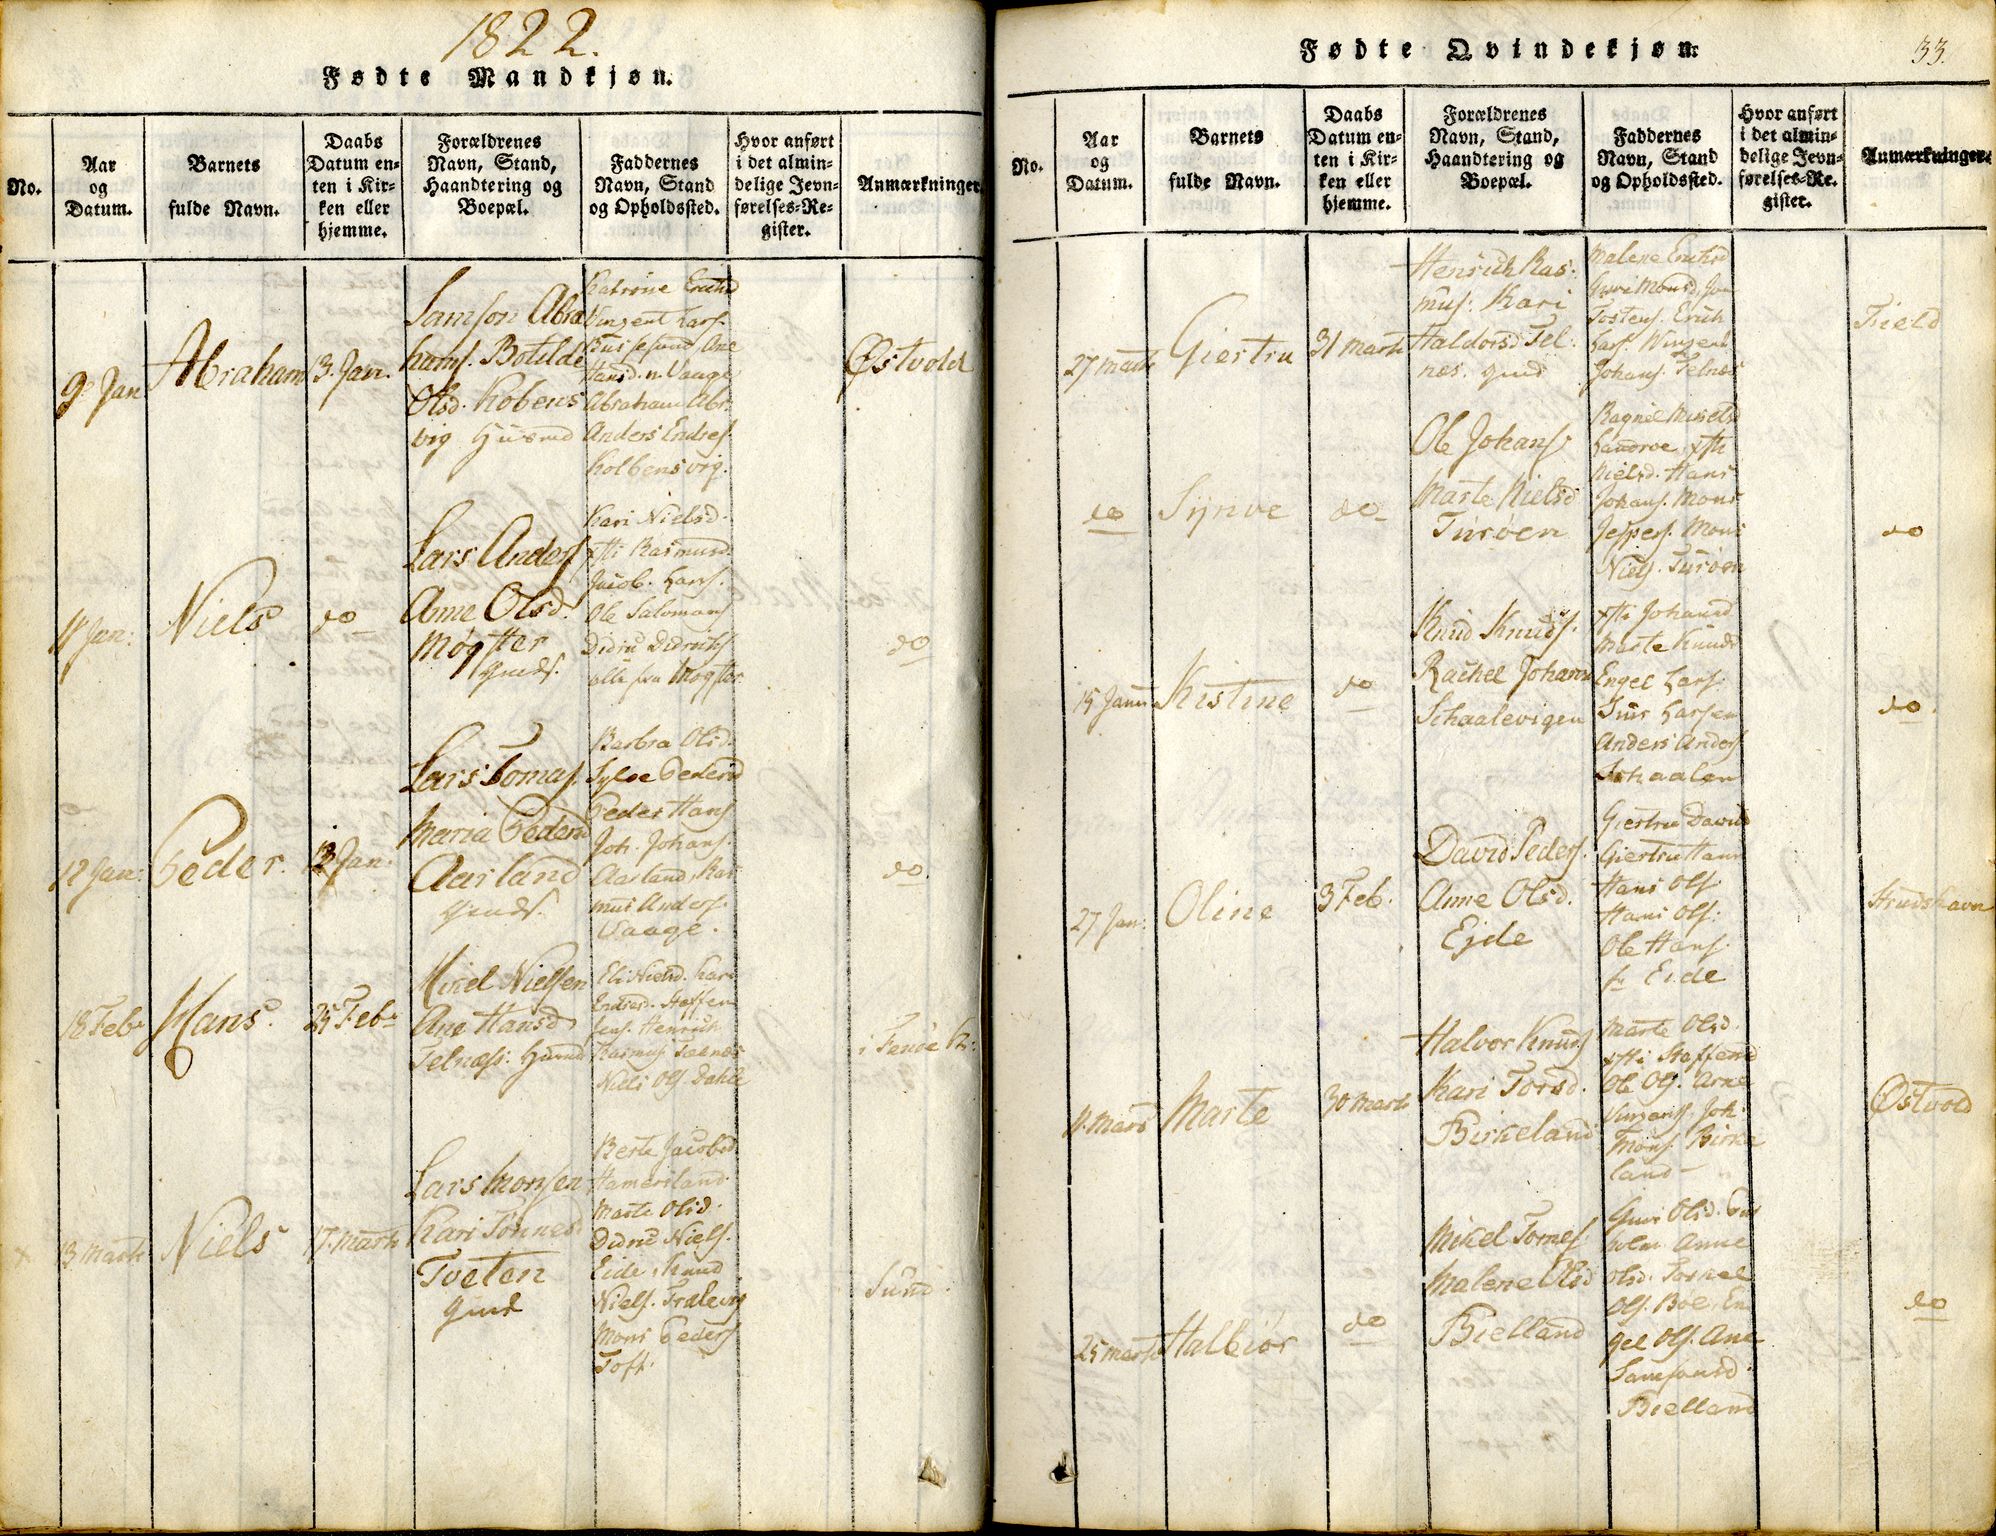 1822.
Fødte Mandkjøn.
No.
Aar
og
Datum.
Barnets
fulde Navn.
Daabs
Datum en-
ten i Kir-
ken eller
hjemme.
Forældrenes
Navn, Stand,
Haandtering og
Boepæl.
Faddernes
Navn, Stand
og Opholdssted.
Hvor anført
i det almin-
delige Jevn-
førelses-Re-
gister.
Anmærkninger
9 Jan
Abraham
13. Jan.
Samson Abra
hams. Botilde
Olsd. Kobens
vig Husmd
Katrine
Vinzent Lars.
Ane
Hansd. n. Vaage
Abraham Abr.
Anders Endres.
Kolbensvig.
Østvold
11 Jan:
Niels
do
Lars Anders
Anne Olsd.
Møgster
Gmds.
Kari Nielsd.
Rasmusd.
Jacob. Hans.
Ole Salomons
Didric Didrichs
alle fra Møgster
do
12 Jan:
Peder.
13 Jan.
Lars Tomas.
Maria Pedersd
Aarland
Gmds.
Barbra Olsd.
Sylve Pedersd
Peder Hans
Joh. Johans.
Aarland, Ras
mus Anders.
Vaage.
do
18 Febr
Hans.
25 Febr
Mikel Nielsen
Ane Hansd
Telnæss. Husmd
Eli Nielsd. Kari
Endresd. Staffen
Jens. Henrich
Rasmus Telnæs
Niels Ols. Dahle
i Fende K:
13 Marti
Niels
17. Marti
Lars Monsen
Kari Tønnesd
Tveten
Gmd
Berte Jacobsd.
Hamersland.
Marte Olsd.
Didric Niels.
Eide, Knud
Niels. Trælevig
Mons Peders
Toft.
Sund.
Fødte Qvindekjøn:
33.
No.
Aar
og
Datum.
Barnets
fulde Navn.
Daabs
Datum en-
ten i Kir-
ken eller
hjemme.
Forældrenes
Navn, Stand,
Haandtering og
Boepæl.
Faddernes
Navn, Stand
og Opholdssted.
Hvor anført
i det almin-
delige Jevn-
førelses-Re-
gister.
Anmærkninger.
27 Marti
Giertru
31 Marti
Henrich Ras-
mus: Kari
Haldorsd Tel-
næs. gmd
Malene Erichsd
Guri Monsd, Jon
Tostens. Erich
Lars. Winzent
Johans. Telnæs
Field
do
Synve
do
Ole Johans
Marte Nielsd
Turøen
Ragnil
Nielsd. Hans
Johans. Mons
Jespers. Mons
Niels. Turøen
do
15 Janu
Kistine
do
Knud Knuds.
Rachel Johann
Schaalevigen
Johansd
Marte Knudsd
Engel Lars.
Iver Larsen
Anders Anders
Schaalen
do.
27. Jan:
Oline
3 Feb.
David Peders.
Anne Olsd.
Eide
Giertru Davids
Giertru Hans
Hans Ols
Hans Ols:
Ole Hans.
fr Eide
Strudshavn
11. Marti
Marte
30 Marti
Halvor Knuds
Kari Torsd.
Birkeland
Marte Olsd.
Staffensd
Ole Ols. Arne
Vinzents. Joh.
Mons. Birke
land
Østvold
25 Marti
Halbiør
do
Mikel Tornes.
Malene Olsd
Bielland
Guri Olsd.
Anne
Olsd. Torkel
Ols. Boe, En
gel Ols. Ane
Samsonsd
Bielland
do